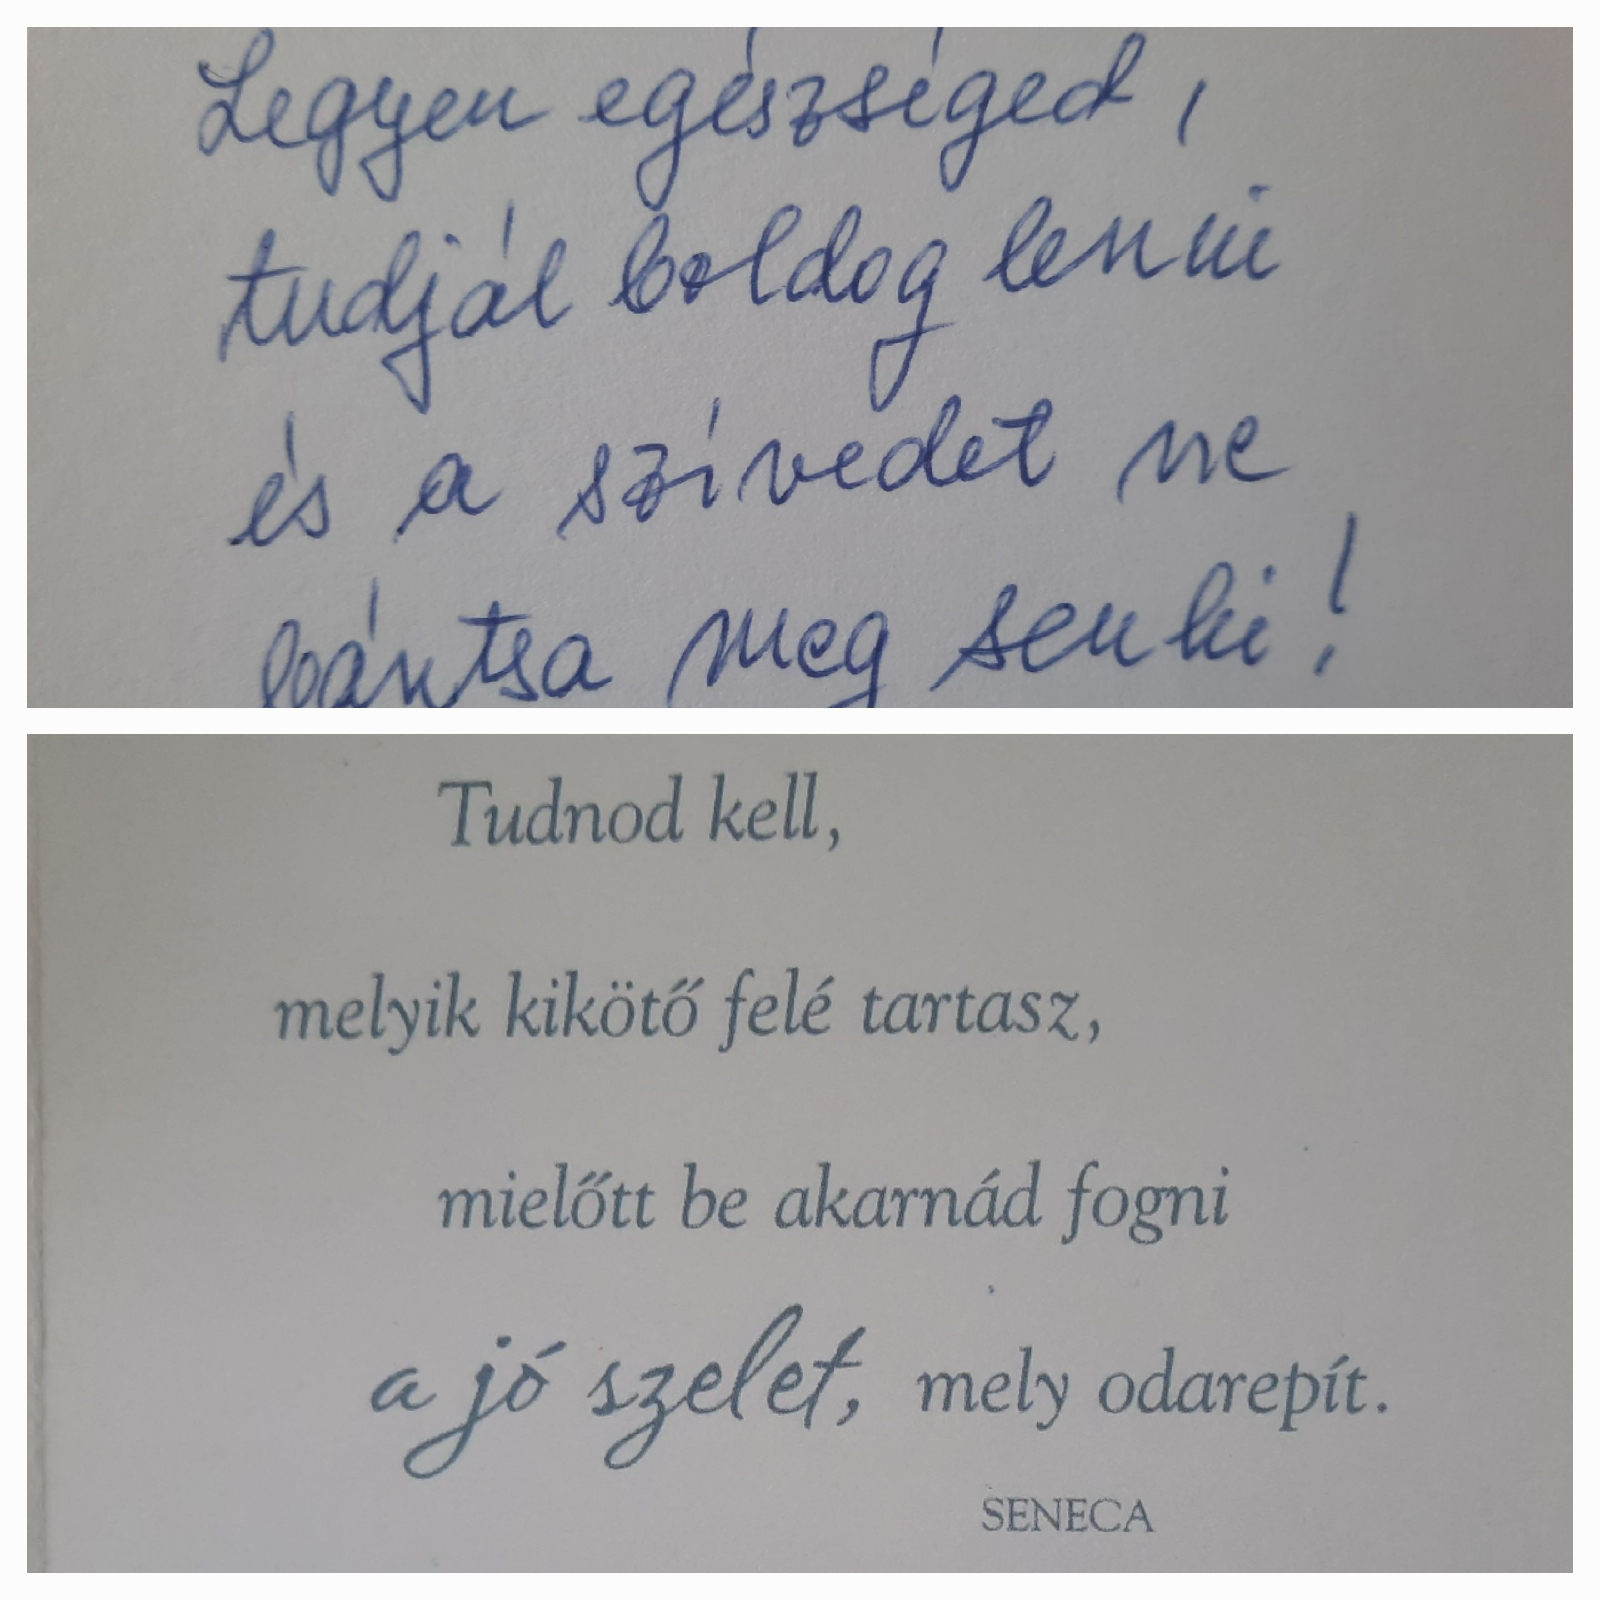 Legyen egészséged,
tudjál boldog lenni
és a szívedet ne
bántsa meg senki!
Tudnod kell,
melyik kikötő felé tartasz,
mielőtt be akarnád fogni
a jó szelet, mely odarepít.
SENECA